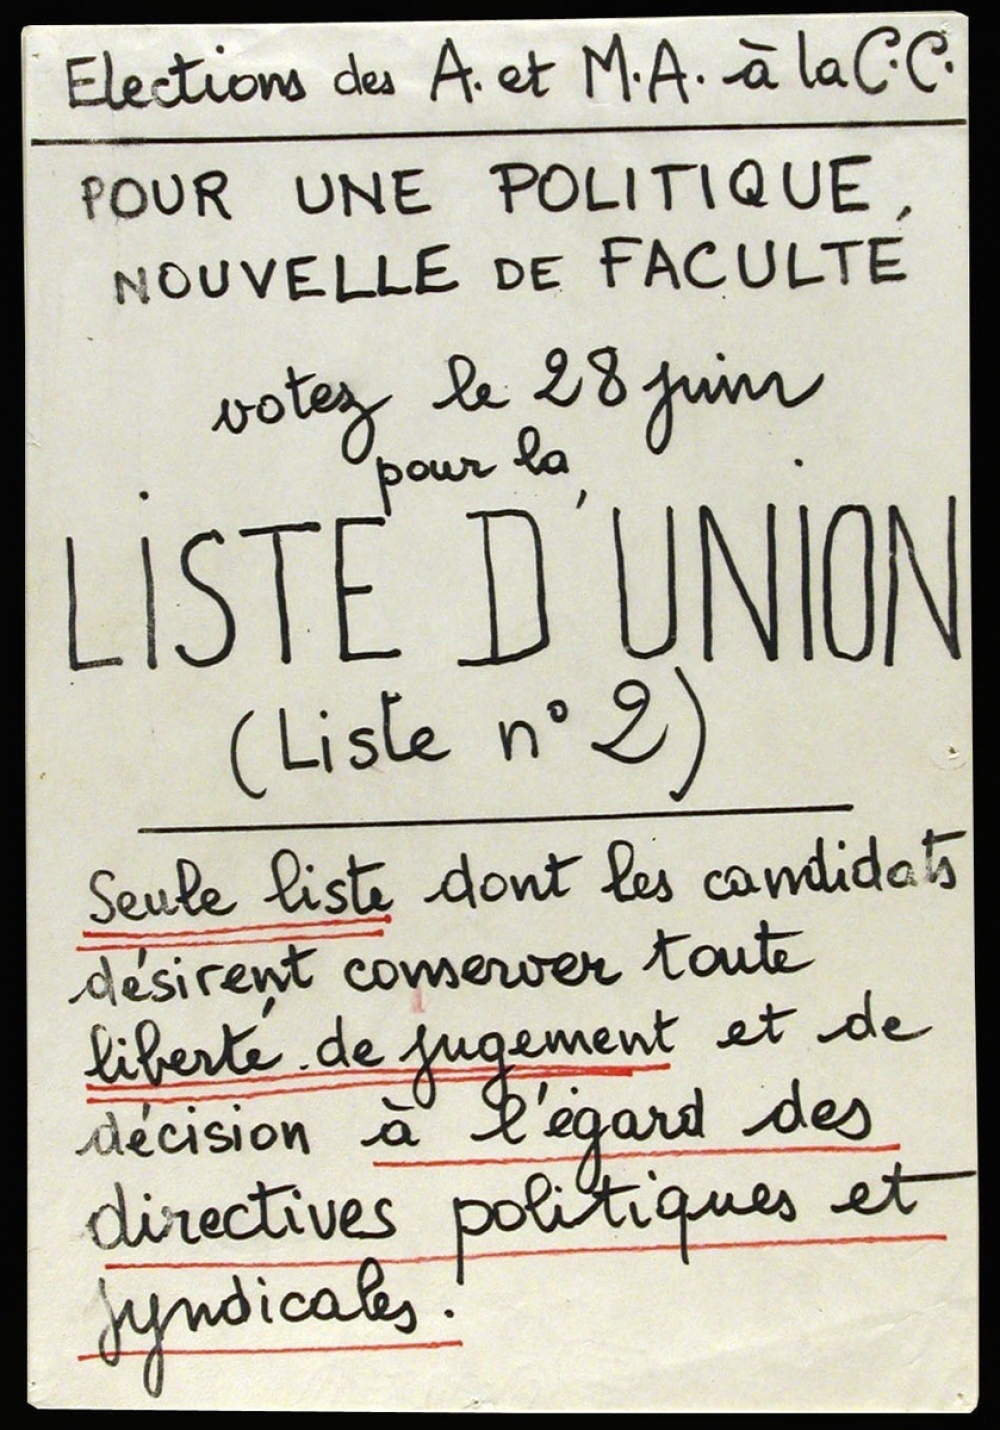 Elections des A. et M.A. à la C.C.
POUR UNE POLITIQUE
NOUVELLE DE FACULTÉ
votez le 28 juin
pour la
LISTE D'UNION
(Liste n° 2)
Seule liste dont les candidats
désirent conserver toute
liberté de jugement et de
décision à l'égard des
directives politiques et
syndicales.